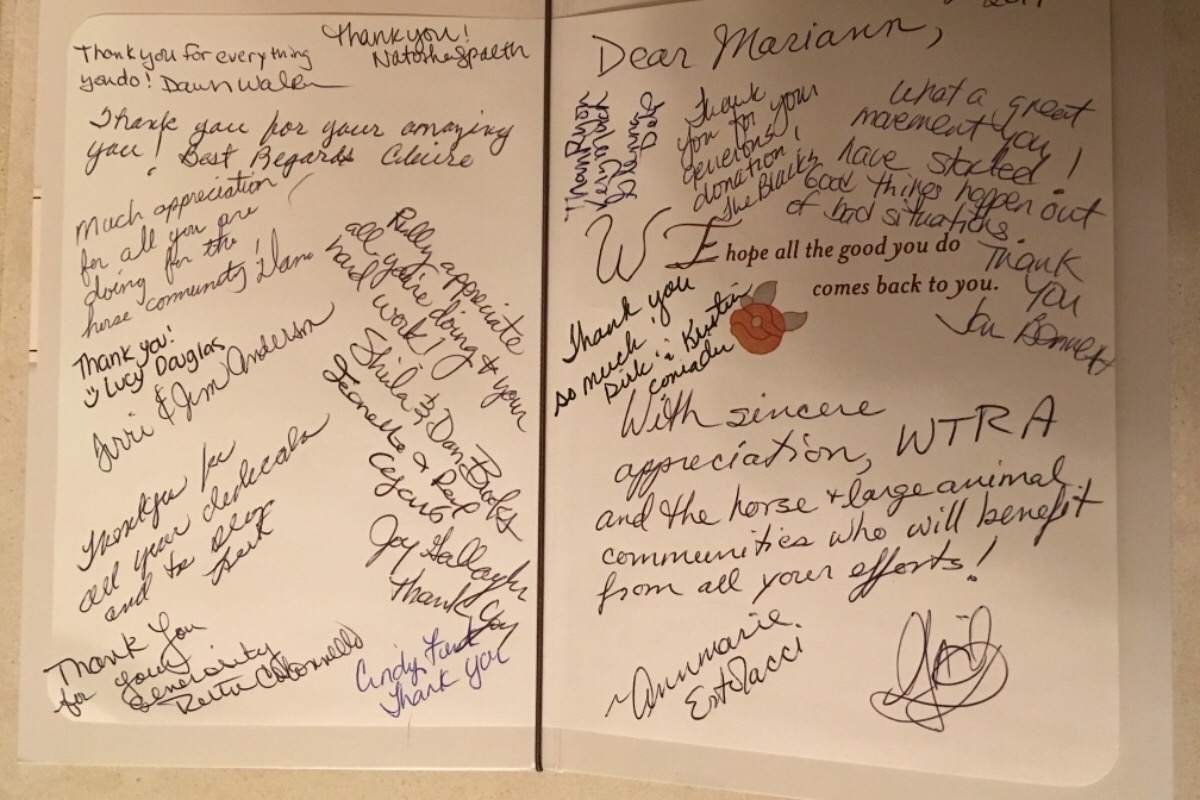 Thank you for everything
you do! Dawn
Thank you!
Natosha Spaeth
Thank you for your amazing
you! Best Regards Claire
Much appreciation
for all you are
doing for the
horse community!
Thank you!
Lucy Douglas
& Jim Anderson
Thank you for
all your
and to
Thank You
for your
Generosity
Really appreciate
all you're doing & your
hard work!
Shiela & Dan Brooks
& Paul
Joy Gallagher
Thank you
Cindy
Thank you
Dear Mariann,
Thank you
Thank
you for your
generous
donation!
The Blacks
What a great
movement you
have started!
Good things happen out
of bad situations.
Thank
You
Jan Bennett
WE hope all the good you do
comes back to you.
Thank you
so much!
Dirk & Kristin
With sincere
appreciation, WTRA
and the horse + large animal
communities who will benefit
from all your efforts!
~Annmarie